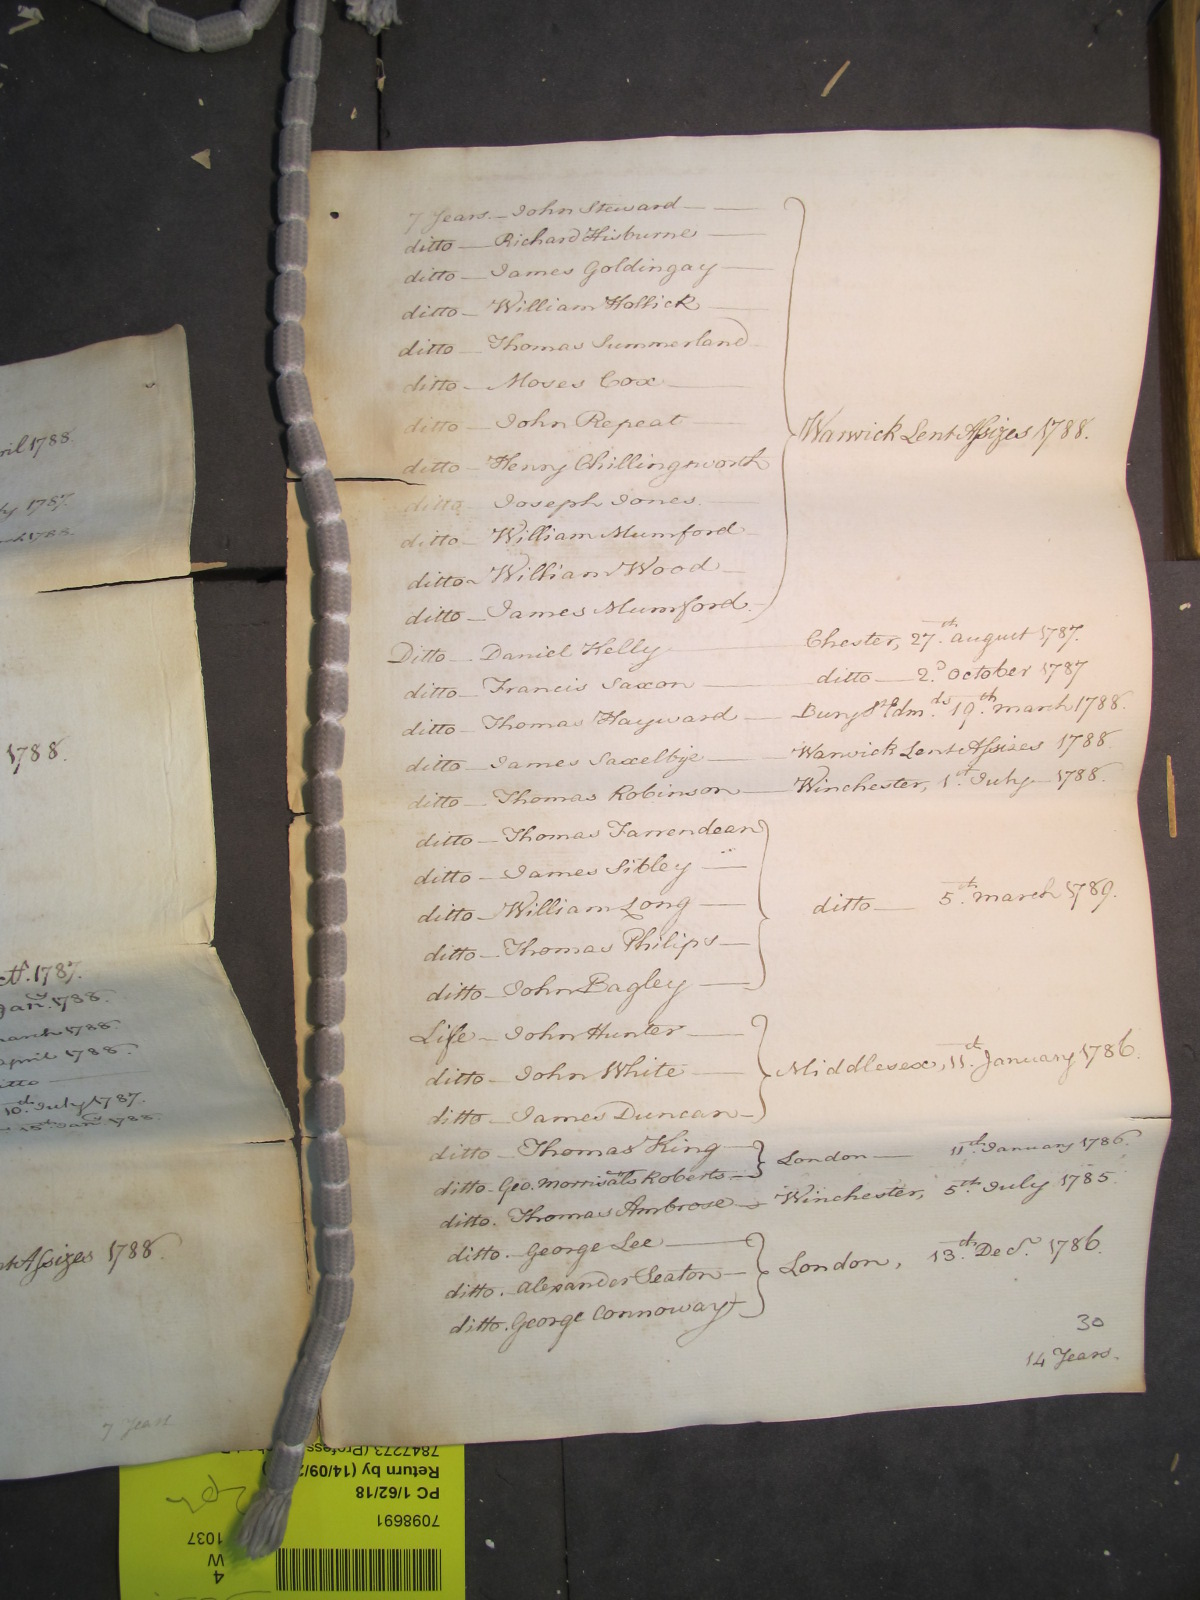 ril 1788.
ly 1787.
1788.
1788.
Octr. 1787.
Jany. 1788.
march 1788.
april 1788.
ditto
10th July 1787.
15th Jany 1788.
nt Assizes 1788.
7 Years
7 Years — John Steward —
ditto — Richard Hisburne —
ditto — James Goldingay —
ditto — William Hollick
ditto — Thomas Summerland
ditto — Moses Cox —
ditto — John Repeat —
Warwick Lent Assizes 1788.
ditto — Henry Chillingsworth
ditto — Joseph Jones —
ditto — William Mumford
ditto — William Wood —
ditto — James Mumford —
Ditto — Daniel Kelly — Chester, 27th. august 1787.
ditto — Francis Saxon — ditto — 2d. October 1787
ditto — Thomas Hayward — Bury St. Edmds. 19th. march 1788.
ditto — James Saxelbye — Warwick Lent Assizes 1788
ditto — Thomas Robinson — Winchester, 1st. July — 1788.
ditto — Thomas Farrendean
ditto — James Sibley —
ditto — William Long — ditto — 5th. march 1789.
ditto — Thomas Philips —
ditto — John Bagley —
Life — John Hunter —
ditto — John White — Middlesex, 11th. January 1786.
ditto — James Duncan —
ditto — Thomas King — London — 11th. January 1786.
ditto. Geo. Morrisals Roberts —
ditto. Thomas Ambrose — Winchester, 5th. July 1785.
ditto. George Lee —
ditto. Alexander Seaton — London, 13th. Decr. 1786.
ditto. George Connoway
30
14 Years.
7847273 (Profess
Return by (14/09/2
PC 1/62/18
7098691
1037
W
4